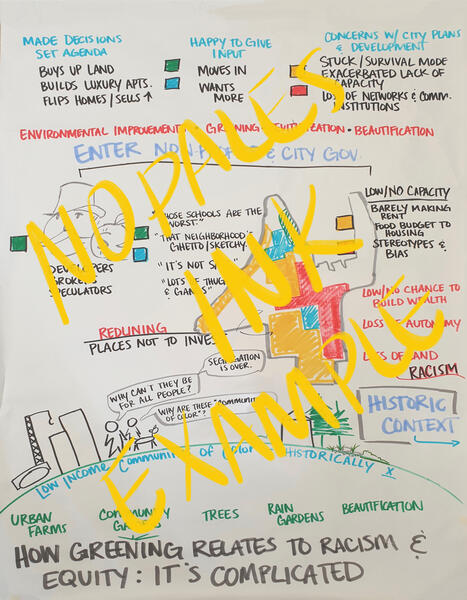 MADE DECISIONS
SET AGENDA
BUYS UP LAND
BUILDS LUXURY APTS.
FLIPS HOMES / SELLS ↑
HAPPY TO GIVE
INPUT
MOVES IN
WANTS
MORE
CONCERNS W/ CITY PLANS
& DEVELOPMENT
STUCK / SURVIVAL MODE
EXACERBATED LACK OF
CAPACITY
OF NETWORKS & COMM.
INSTITUTIONS
ENVIRONMENTAL IMPROVEMENT • BEAUTIFICATION
ENTER & CITY GOV.
SCHOOLS ARE THE
WORST."
"THAT NEIGHBORHOOD'S
GHETTO/SKETCHY."
"IT'S NOT
"LOTS OF
& GANGS"
DEVELOPERS
BROKERS
SPECULATORS
LOW/NO CAPACITY
BARELY MAKING
RENT
FOOD BUDGET TO
HOUSING
STEREOTYPES &
BIAS
LOW/NO CHANCE TO
BUILD WEALTH
LOSS OF AUTONOMY
LOSS OF LAND
RACISM
REDLINING
PLACES NOT TO INVEST
SEGREGATION
IS OVER.
WHY CAN'T THEY BE
FOR ALL PEOPLE?
WHY ARE THESE "COMMUNITIES
OF COLOR"?
HISTORIC
CONTEXT
LOW INCOME COMMUNITY OF COLOR HISTORICALLY X
URBAN
FARMS
COMMUNITY
GARDENS
TREES
RAIN
GARDENS
BEAUTIFICATION
HOW GREENING RELATES TO RACISM &
EQUITY: IT'S COMPLICATED
NOPALES
INK
EXAMPLE